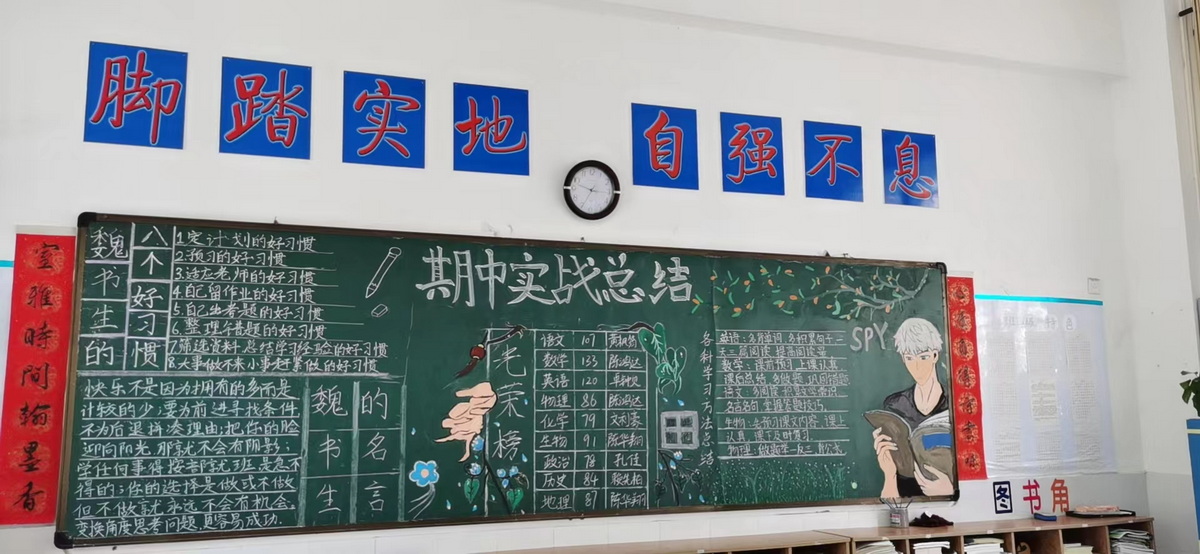 脚踏实地 自强不息
室雅時间翰墨香
魏书生的
八个好习惯
1.定计划的好习惯
2.预习的好习惯
3.适应老师的好习惯
4.自己留作业的好习惯
5.自己出考题的好习惯
6.整理错题的好习惯
7.筛选资料、总结学习经验的好习惯
8.大事做不来、小事赶紧做的好习惯
快乐不是因为拥有的多而是
计较的少;要为前进寻找条件
不为后退拼凑理由;把你的脸
迎向阳光,那就不会有阴影;
学任何事得按着阶梯
得的;你的选择是做或不做
但不做就永远不会有机会,
变换角度思考问题,更容易成功.
魏书生
的名言
期中实战总结
光荣榜
语文 107
数学 133 陈鸿达
英语 120
物理 86 陈鸿达
化学 79 文利豪
生物 91 陈华翔
政治 78 孔佳
历史 84
地理 87 陈华翔
各科学习方法总结
英语:多背单词,多积累句子
天天阅读 提高阅读量
数学:课前预习 上课认真
语文:多阅读
生物:去预习课文内容,课上
认真,课下及时复习
物理:做题举一反三
SPY
图书角